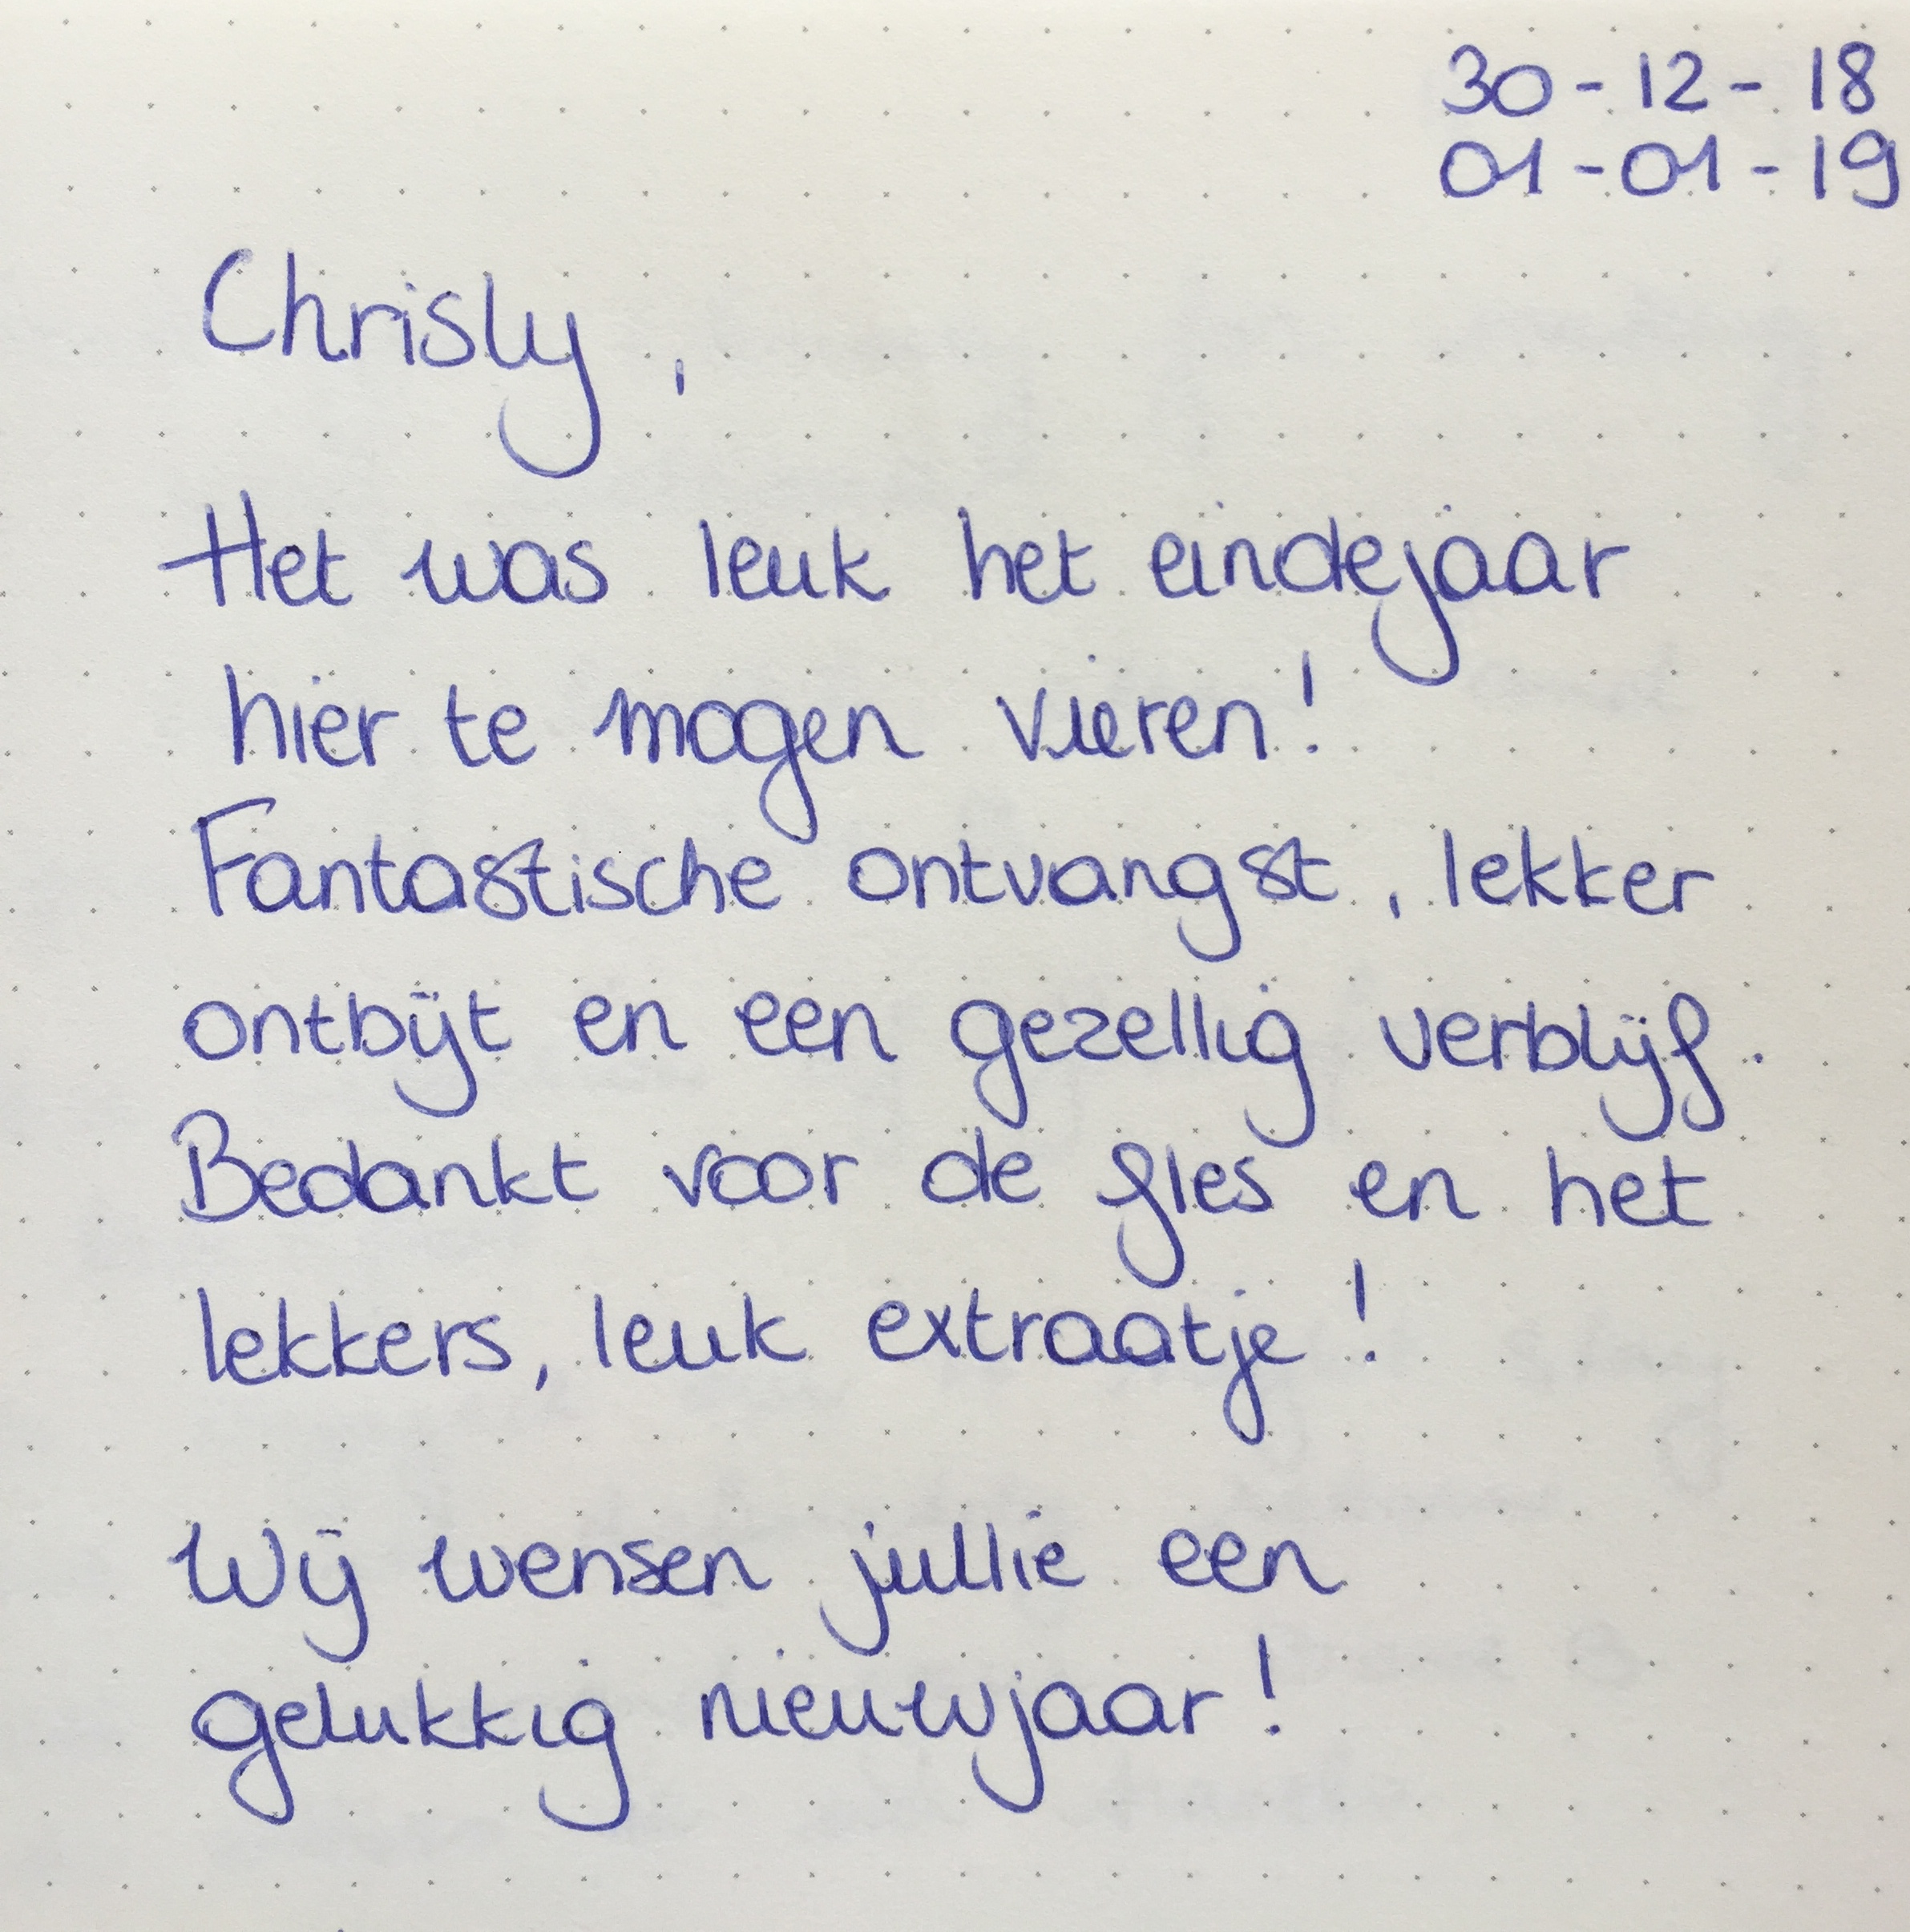 30-12-18
01-01-19
Chrisly,
Het was leuk het eindejaar
hier te mogen vieren!
Fantastische ontvangst, lekker
ontbijt en een gezellig verblijf.
Bedankt voor de fles en het
lekkers, leuk extraatje!
Wij wensen jullie een
gelukkig nieuwjaar!